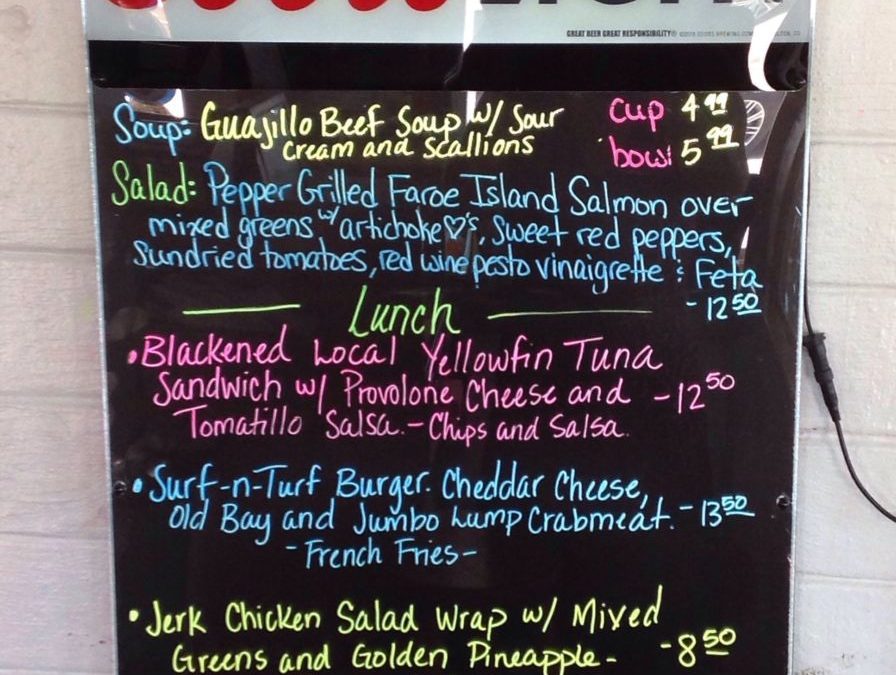 Coors LIGHT
GREAT BEER GREAT RESPONSIBILITY®
Soup: Guajillo Beef Soup w/ Sour
cream and scallions
cup 4 99
bowl 5 99
Salad: Pepper Grilled Faroe Island Salmon over
mixed greens w/ artichoke ♡'s, sweet red peppers,
sundried tomatoes, red wine pesto vinaigrette & Feta
- 12 50
Lunch
• Blackened Local Yellowfin Tuna
Sandwich w/ Provolone Cheese and - 12 50
Tomatillo Salsa. - Chips and Salsa.
• Surf-n-Turf Burger. Cheddar Cheese,
Old Bay and Jumbo Lump Crabmeat. - 13 50
- French Fries -
• Jerk Chicken Salad Wrap w/ Mixed
Greens and Golden Pineapple - - 8 50